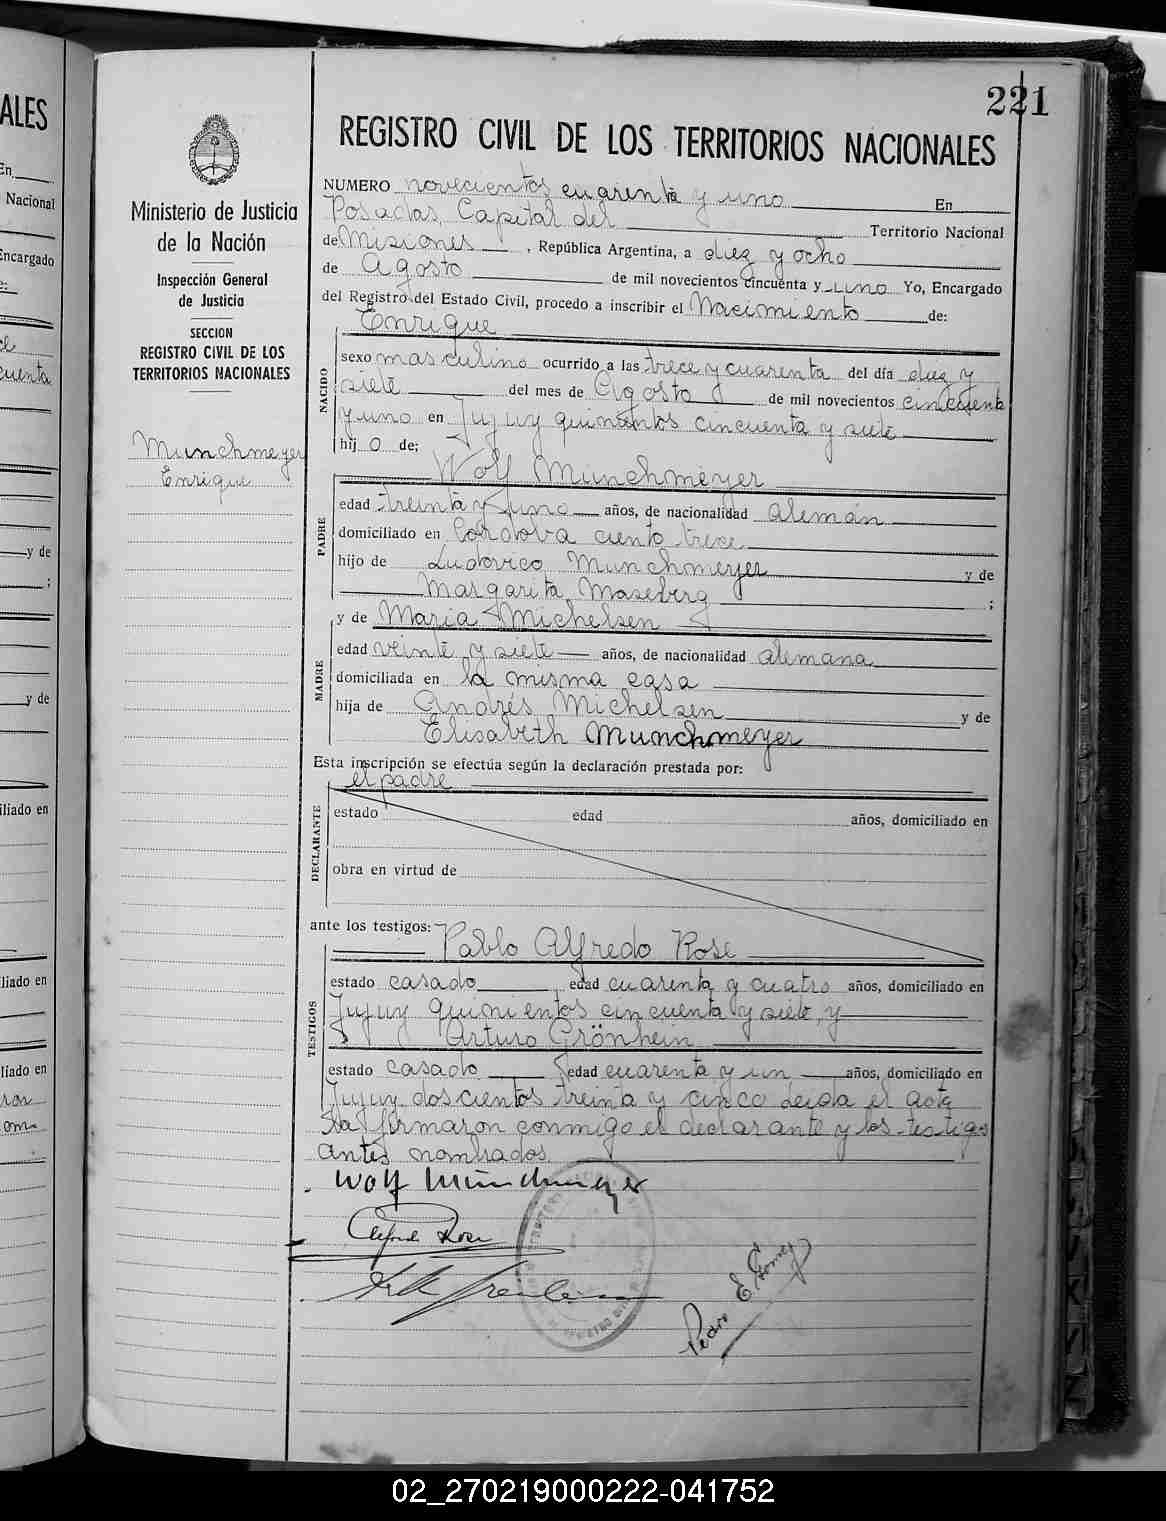 221
REGISTRO CIVIL DE LOS TERRITORIOS NACIONALES
Ministerio de Justicia
de la Nación
Inspección General
de Justicia
SECCION
REGISTRO CIVIL DE LOS
TERRITORIOS NACIONALES
Munchmeyer
Enrique
NUMERO novecientos cuarenta y uno En
Posadas, Capital del Territorio Nacional
de Misiones, República Argentina, a diez y ocho
de Agosto de mil novecientos cincuenta y uno Yo, Encargado
del Registro del Estado Civil, procedo a inscribir el Nacimiento de:
Enrique
NACIDO
sexo masculino ocurrido a las trece y cuarenta del día diez y
siete del mes de Agosto de mil novecientos cincuenta
y uno en Jujuy quinientos cincuenta y siete
hij o de:
Wolf Munchmeyer
PADRE
edad treinta y uno años, de nacionalidad alemán
domiciliado en Córdova ciento trece
hijo de Ludovico Munchmeyer y de
Margarita Maseberg ;
y de Maria Michelsen
MADRE
edad veinte y siete años, de nacionalidad alemana
domiciliada en la misma casa
hija de Andrés Michelsen y de
Elisabeth Munchmeyer
Esta inscripción se efectúa según la declaración prestada por:
el padre
DECLARANTE
estado edad años, domiciliado en
obra en virtud de
ante los testigos: Pablo Alfredo Rose
TESTIGOS
estado casado edad cuarenta y cuatro años, domiciliado en
Jujuy quinientos cincuenta y siete, y
Arturo Grönhein
estado casado edad cuarenta y un años, domiciliado en
Jujuy doscientos treinta y cinco leida el acta
la firmaron conmigo el declarante y los testigos
antes nombrados.
Wolf Münchmeyer
Alfredo Rose
Pedro E. Gomez
02_270219000222-041752